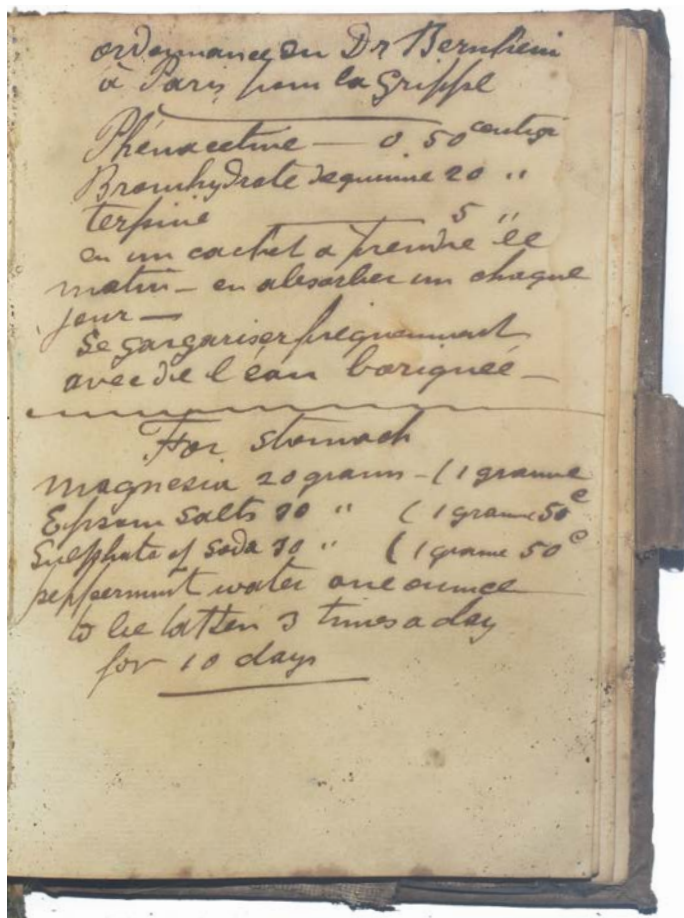 ordonnance du Dr Bernheim
à Paris pour la Grippe
Phénacetine — 0 50 centigr
Bromhydrate de quinine 20 "
terpine 5 "
en un cachet a prendre le
matin — en absorber un chaque
jour —
Se gargariser frequemment
avec de l'éau boriquéé —
For stomach
magnesia 20 grains — (1 gramme
Epsom Salts 30 " (1 gramme 50 c
Sulphate of Soda 30 " (1 grame 50 c
peppermint water one ounce
to be taken 3 times a day
for 10 days